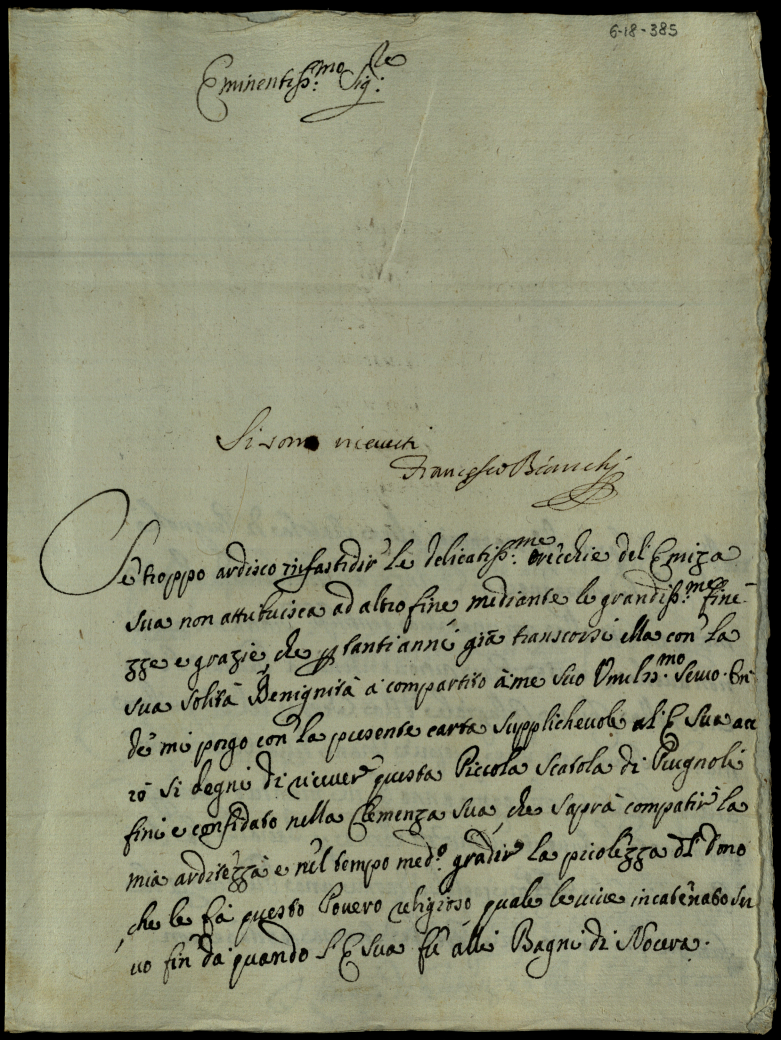 6-18-385
Eminentiss:mo Sig:re
Si sono riceuuti
Francesco Bianchi
Se troppo ardisco infastidir le delicatiss:me orecchie del Emiza
sua non attribuisca ad altro fine mediante le grandiss:me fine-
zze e grazie, che p tanti anni già transcorsi ella con la
sua solità Benignità à compartito à me suo Vmiliss.mo seruo. On
de mi porgo con la presente carta supplicheuole al E Sua acc
iò si degni di riceuer questa Piccola scatola di Prugnoli
fini e confidato nella Clemenza sua, che saprà compatir la
mia arditezza e nel tempo med.o gradir la picolezza del dono
che le fà questo Pouero religioso quale le uiue incatenato Ser
uo fin da quando l'E Sua fù alli Bagni di Nocera.